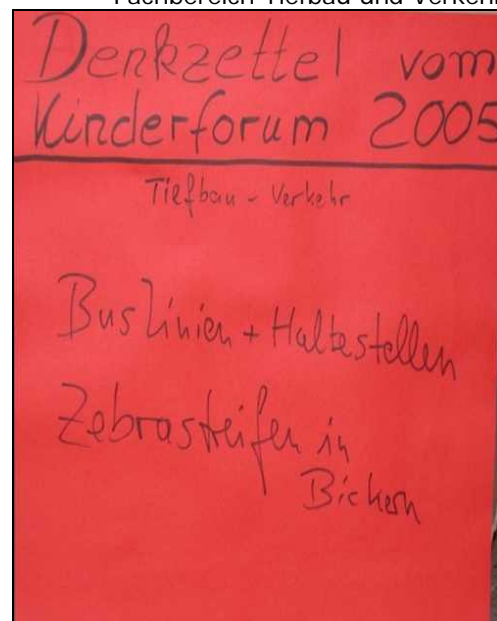 Fachbereich Tiefbau und Verkehr
Denkzettel vom
Kinderforum 2005
Tiefbau - Verkehr
Buslinien + Haltestellen
Zebrasteifen in
Bickern